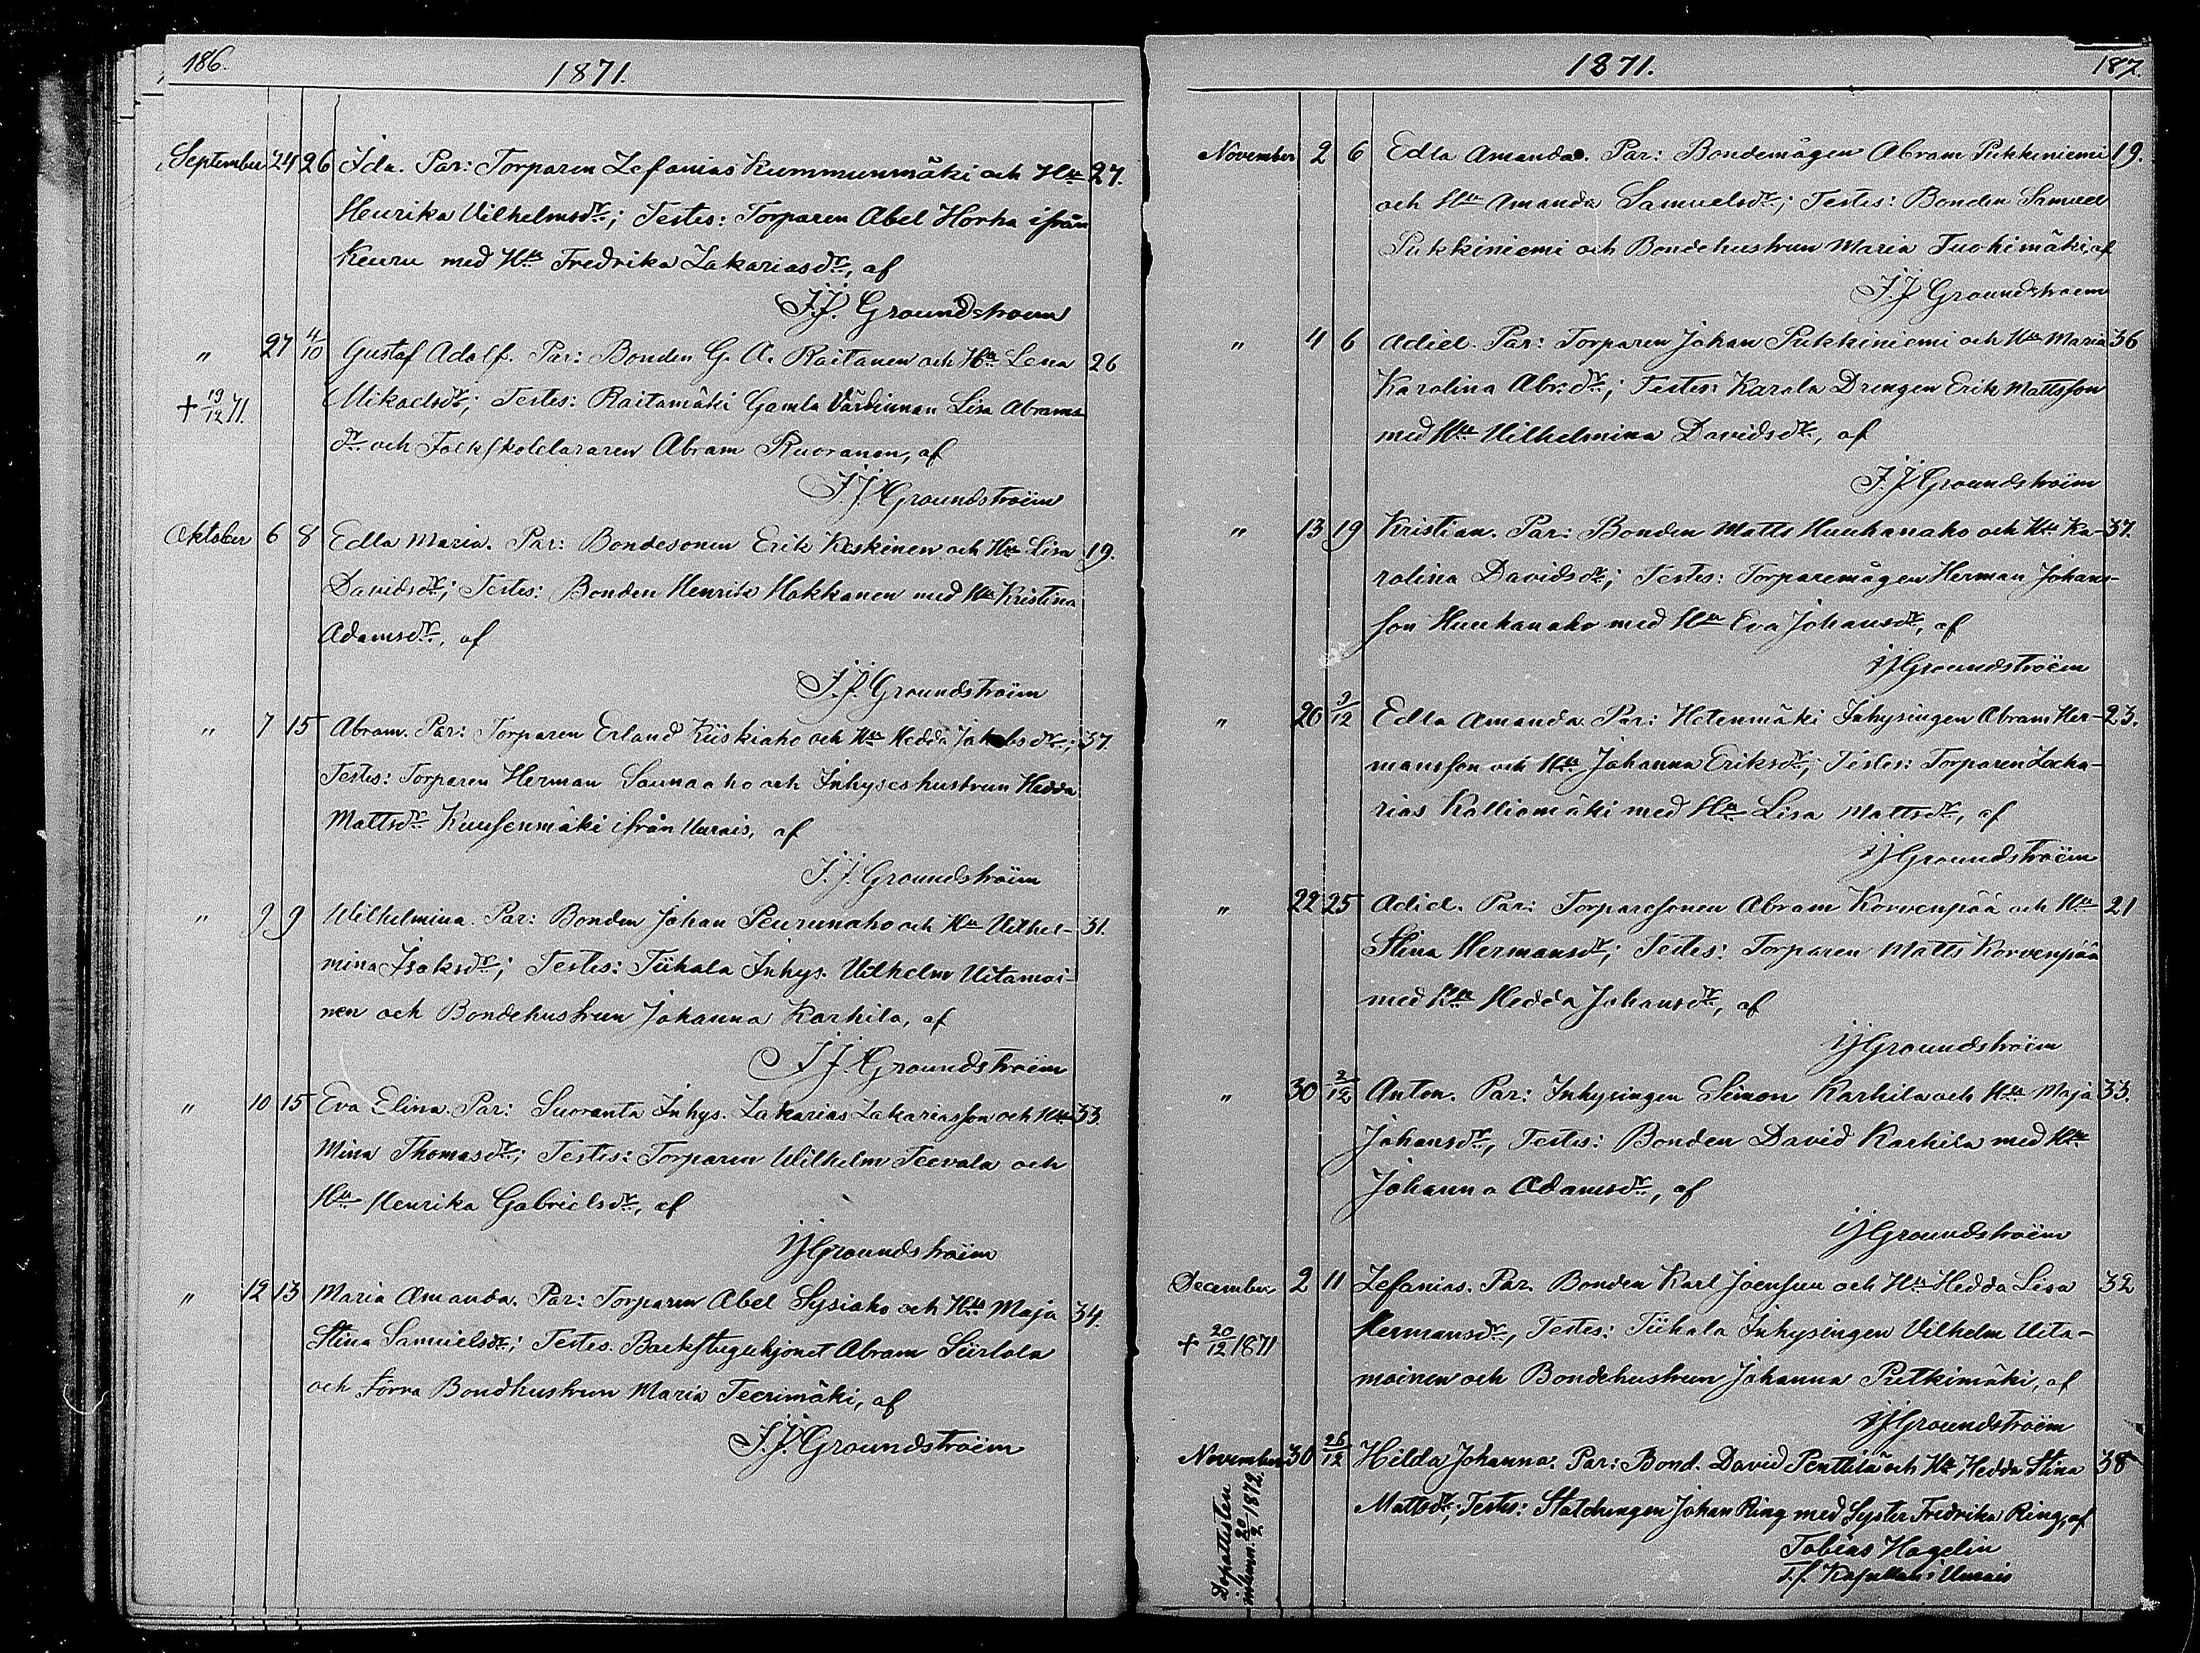 186.
1871.
September 24 26 Ida. Par: Torparen Zefanias Kummunmäki och Hu 27.
Henrika Vilhelmsdr.; Testes: Torparen Abel Horha ifrån
Keuru med Hu Fredrika Zakariasdr., af
J.J. Groundstroem
" 27 4/10 Gustaf Adolf. Par: Bonden G. A. Raitanen och Hu Lena 26
+ 19/12 71. Mikaelsdr.; Testes: Raitamäki Gamla Värdinnan Lisa Abrams
dr. och Folkskolelararen Abram Ruoranen, af
J.J. Groundstroëm
Oktober 6 8 Edla Maria. Par: Bondesonen Erik Keskinen och Hu Lisa 19.
Davidsdr.; Testes: Bonden Henrik Hakkanen med Hu Kristina
Adamsdr., af
J.J. Groundstroëm
" 7 15 Abram. Par: Torparen Erland Kiiskiaho och Hu Hedda Jakobsdr.; 37.
Testes: Torparen Herman Saunaaho och Inhyseshustrun Hedda
Mattsdr. Kuusenmäki ifrån Uurais, af
J.J. Groundstroëm
" 9 9 Wilhelmina. Par: Bonden Johan Peurunaho och Hu Vilhel- 31.
mina Isaksdr.; Testes: Tiihala Inhys. Vilhelm Uitamoi-
nen och Bondehustrun Johanna Karhila, af
J.J. Groundstroëm
" 10 15 Eva Elina. Par: Suoranta Inhys. Zakarias Zakariasson och Hu 33.
Mina Thomasdr.; Testes: Torparen Wilhelm Teevala och
Hu Henrika Gabrielsdr., af
JJGroundstroëm
" 12 13 Maria Amanda. Par: Torparen Abel Sysiaho och Hu Maja 34.
Stina Samuelsdr.; Testes. Backstuguhjonet Abram Siirlola
och förra Bondhustrun Maria Teerimäki, af
J.J. Groundstroëm
1871.
187.
November 2 6 Edla Amanda. Par: Bondemågen Abram Pukkiniemi 19.
och Hu Amanda Samuelsdr.; Testes: Bonden Samuel
Pukkiniemi och Bondehustrun Maria Tuohimäki, af
J.J Groundstroem
" 4 6 Adiel. Par: Torparen Johan Pukkiniemi och Hu Maria 36
Karolina Abr:dr.; Testes: Karala Drengen Erik Mattsson
med Hu Vilhelmina Davidsdr., af
J.J Groundstroëm
" 13 19 Kristian. Par: Bonden Matts Huuhanaho och Hu Ka- 37.
rolina Davidsdr.; Testes: Torparemågen Herman Johans-
son Huuhanaho med Hu Eva Johansdr., af
JJGroundstroëm
" 20 3/12 Edla Amanda. Par: Hetenmäki Inhysingen Abram Her- 23.
mansson och Hu Johanna Eriksdr.; Testes: Torparen Zacka-
rias Kalliomäki med Hu Lisa Mattsdr., af
JJGroundstroëm
" 22 25 Adiel. Par: Torparesonen Abram Korvenpää och Hu 21
Stina Hermansdr.; Testes: Torparen Matts Korvenpää
med Hu Hedda Johansdr., af
JJGroundstroëm
" 30 2/12 Anton. Par: Inhysingen Simon Karhila och Hu Maja 33.
Johansdr., Testes: Bonden David Karhila med Hu
Johanna Adamsdr., af
JJGroundstroëm
December 2 11 Zefanias. Par. Bonden Karl Joensuu och Hu Hedda Lisa 32
+ 20/12 1871 Hermansdr., Testes: Tiihala Inhysingen Vilhelm Uita-
moinen och Bondehustrun Johanna Putkimäki, af
JJGroundstroëm
November 30 26/12 Hilda Johanna. Par: Bond. David Penttilä och Hu Hedda Stina 38
Mattsdr.; Testes: Statdrengen Johan Ring med Syster Fredrika Ring, af
Tobias Hagelin
T.f. Kapellan i Uurais
Dopattesten
inlemn. 20/2 1872.